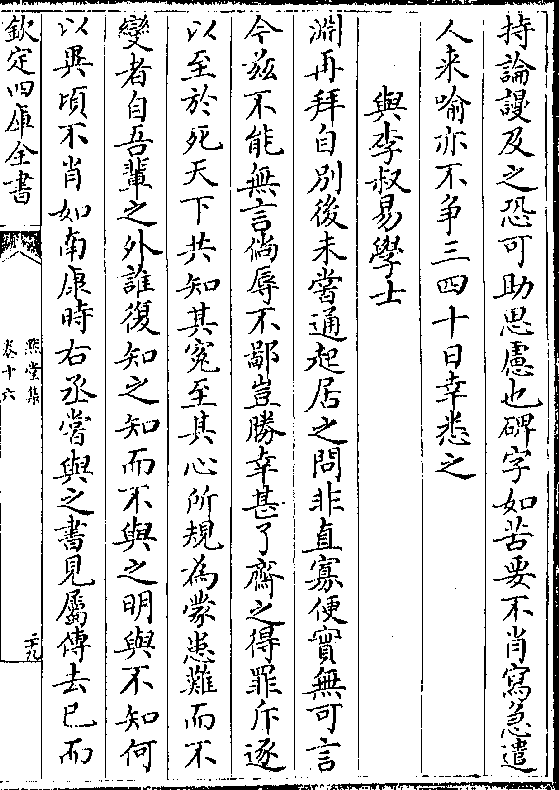 持論謾及之恐可助思慮也碑字如苦要不肖寫急遣
人来喻亦不争三四十日幸悉之
與李叔易學士
淵再拜自別後未嘗通起居之問非直寡便實無可言
今兹不能無言倘辱不鄙豈勝幸甚了齋之得罪斥逐
以至於死天下共知其冤至其心所規為蒙患難而不
變者自吾輩之外誰復知之知而不與之明與不知何
以異頃不肖如南康時右丞嘗與之書見屬傳去已而
欽定四庫全書
黙堂集
卷十六
二十九